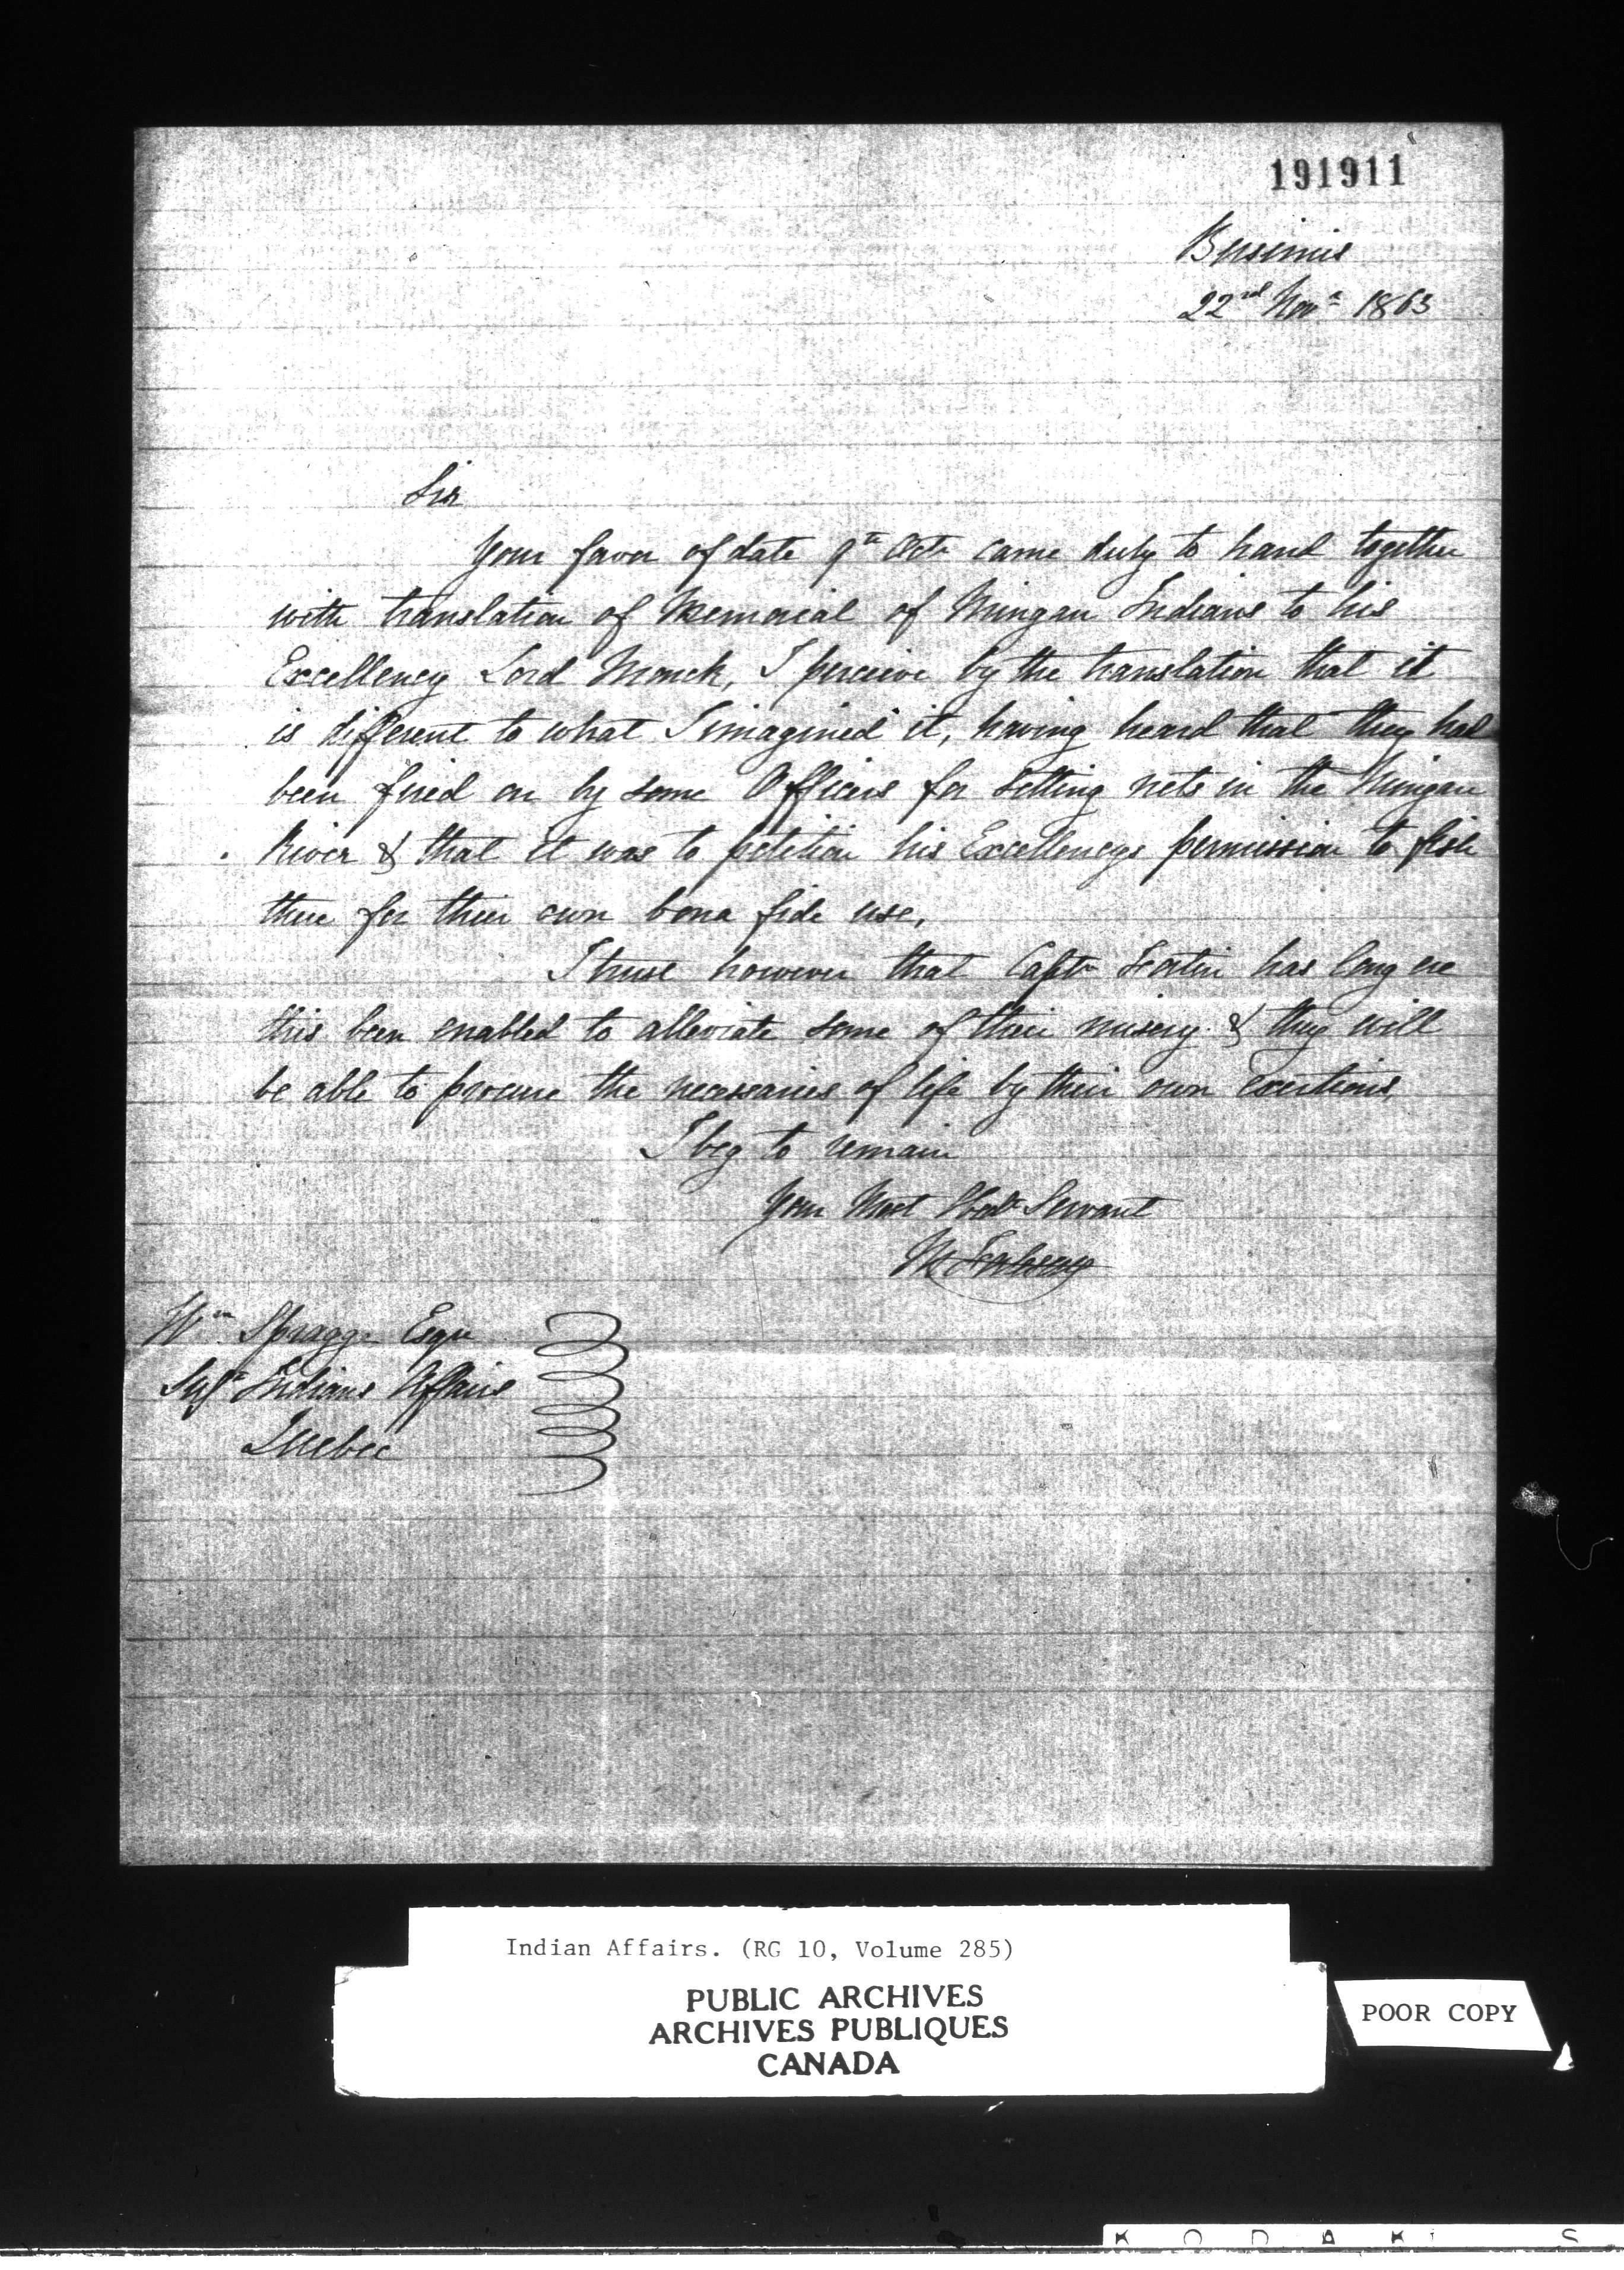 191911
Bersimis
22nd Novr 1863
Sir
Your favor of date 9th Octr came duly to hand together
with translation of Memorial of Mingan Indians to his
Excellency Lord Monck, I perceive by the translation that it
is different to what I imagined it, having heard that they had
been fired on by some Officers for setting nets in the Mingan
River & that it was to petition his Excellencys permission to fish
there for their own bona fide use,
I trust however that Captn Fortin has long ere
this been enabled to alleviate some of their misery & they will
be able to procure the necessaries of life by their own exertions,
I beg to remain
Your Most Obdt Servant
Wm Spragge Esqre
Supt Indians Affairs
Quebec
Indian Affairs. (RG 10, Volume 285)
PUBLIC ARCHIVES
ARCHIVES PUBLIQUES
CANADA
POOR COPY
KODAK S